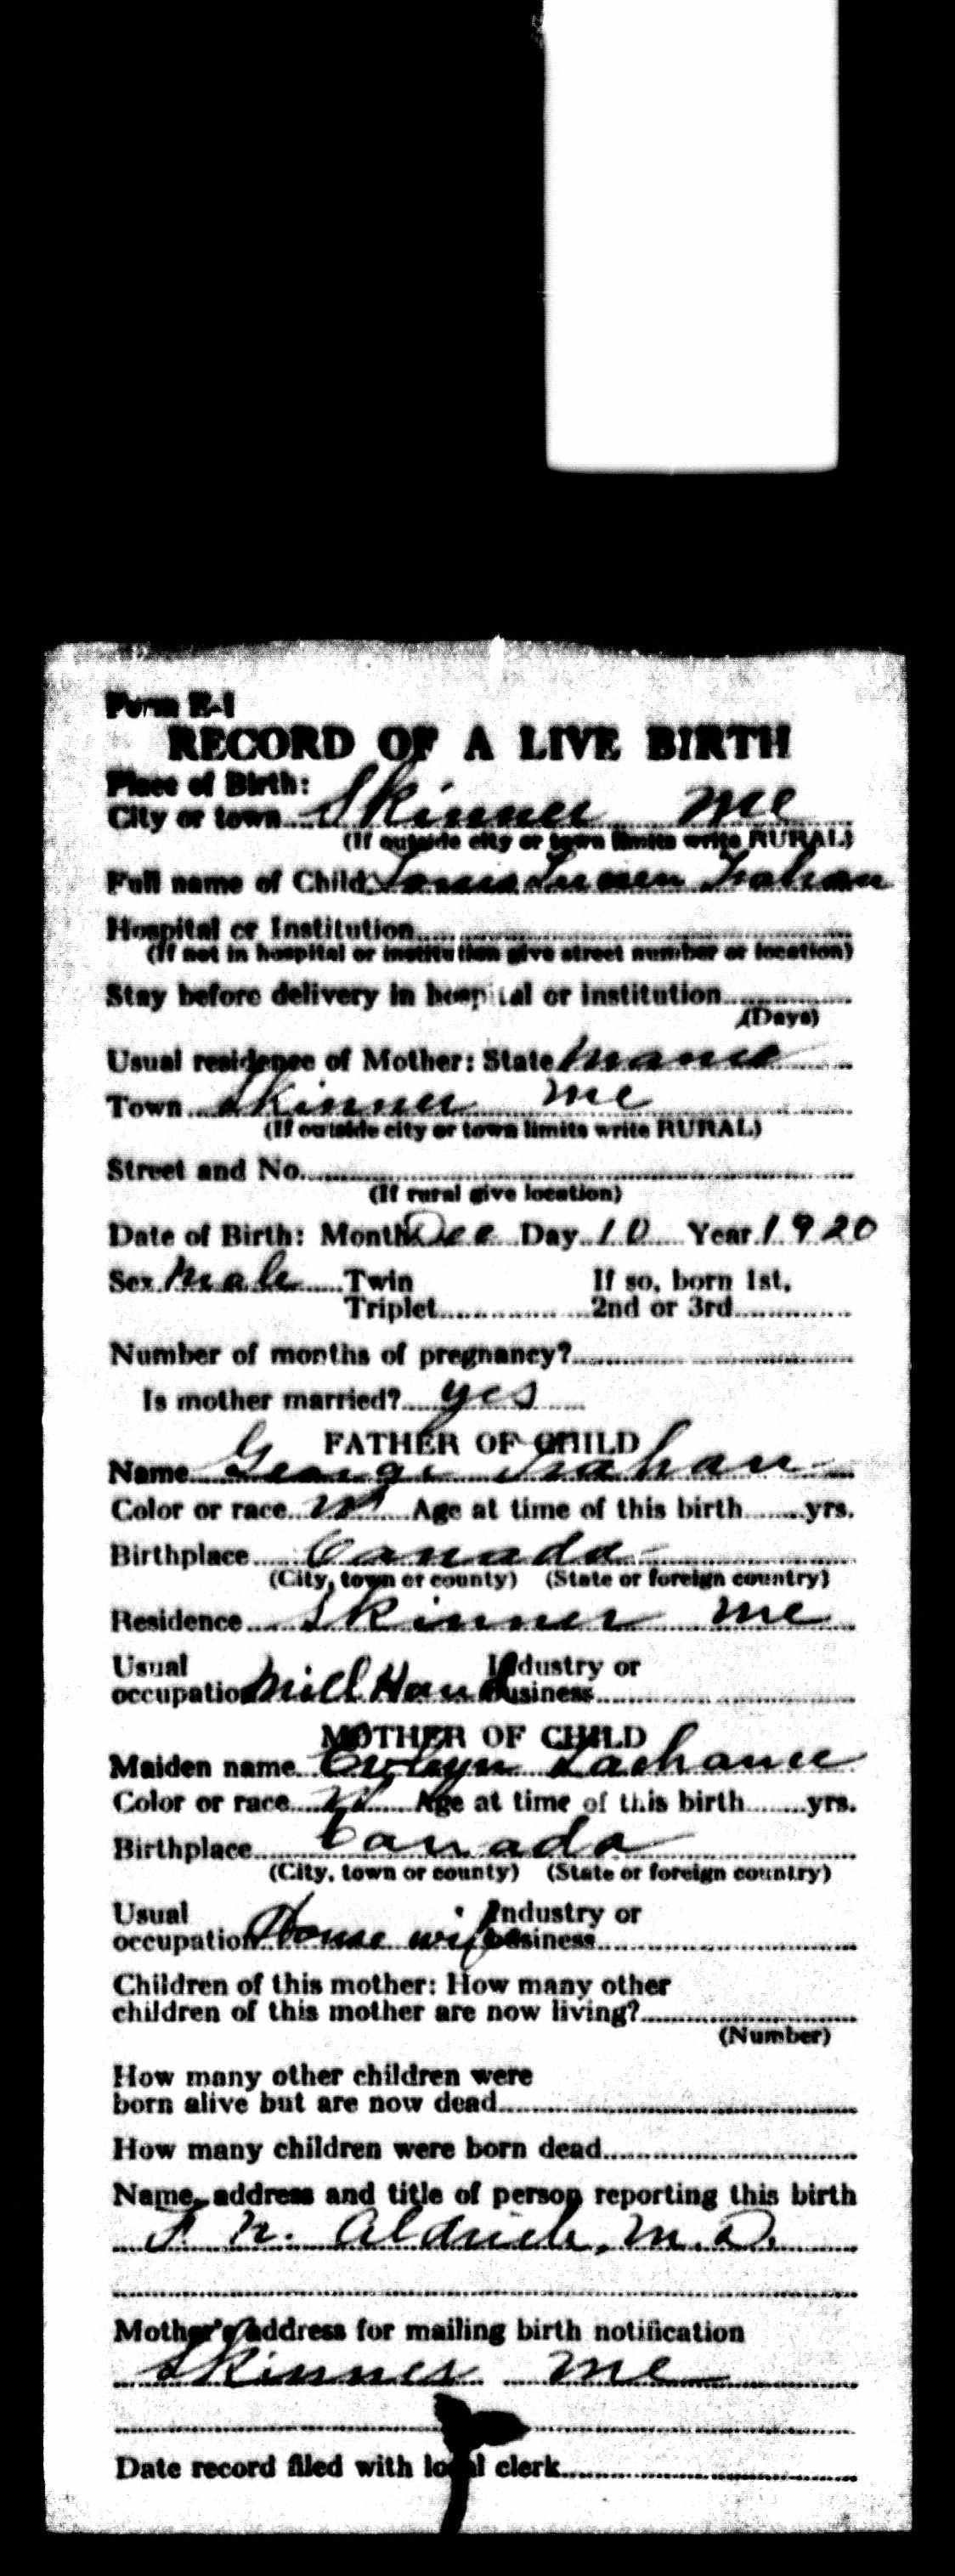 Form E-1
RECORD OF A LIVE BIRTH
Place of Birth:
City or town Skinner Me
(If outside city or town limits write RURAL)
Full name of Child Trahan
Hospital or Institution
(If not in hospital or institution give street number or location)
Stay before delivery in hospital or institution
(Days)
Usual residence of Mother: State Maine
Town Skinner Me
(If outside city or town limits write RURAL)
Street and No.
(If rural give location)
Date of Birth: Month Dec Day 10 Year 1920
Sex Male Twin If so, born 1st,
Triplet 2nd or 3rd
Number of months of pregnancy?
Is mother married? yes
FATHER OF CHILD
Name George Trahan
Color or race W Age at time of this birth yrs.
Birthplace Canada
(City, town or county) (State or foreign country)
Residence Skinner Me
Usual Industry or
occupation Mill Hand business
MOTHER OF CHILD
Maiden name Evelyn Lachance
Color or race W Age at time of this birth yrs.
Birthplace Canada
(City, town or county) (State or foreign country)
Usual Industry or
occupation House wife business
Children of this mother: How many other
children of this mother are now living?
(Number)
How many other children were
born alive but are now dead
How many children were born dead
Name, address and title of person reporting this birth
Aldrich, M.D.
Mother's address for mailing birth notification
Skinner Me
Date record filed with local clerk